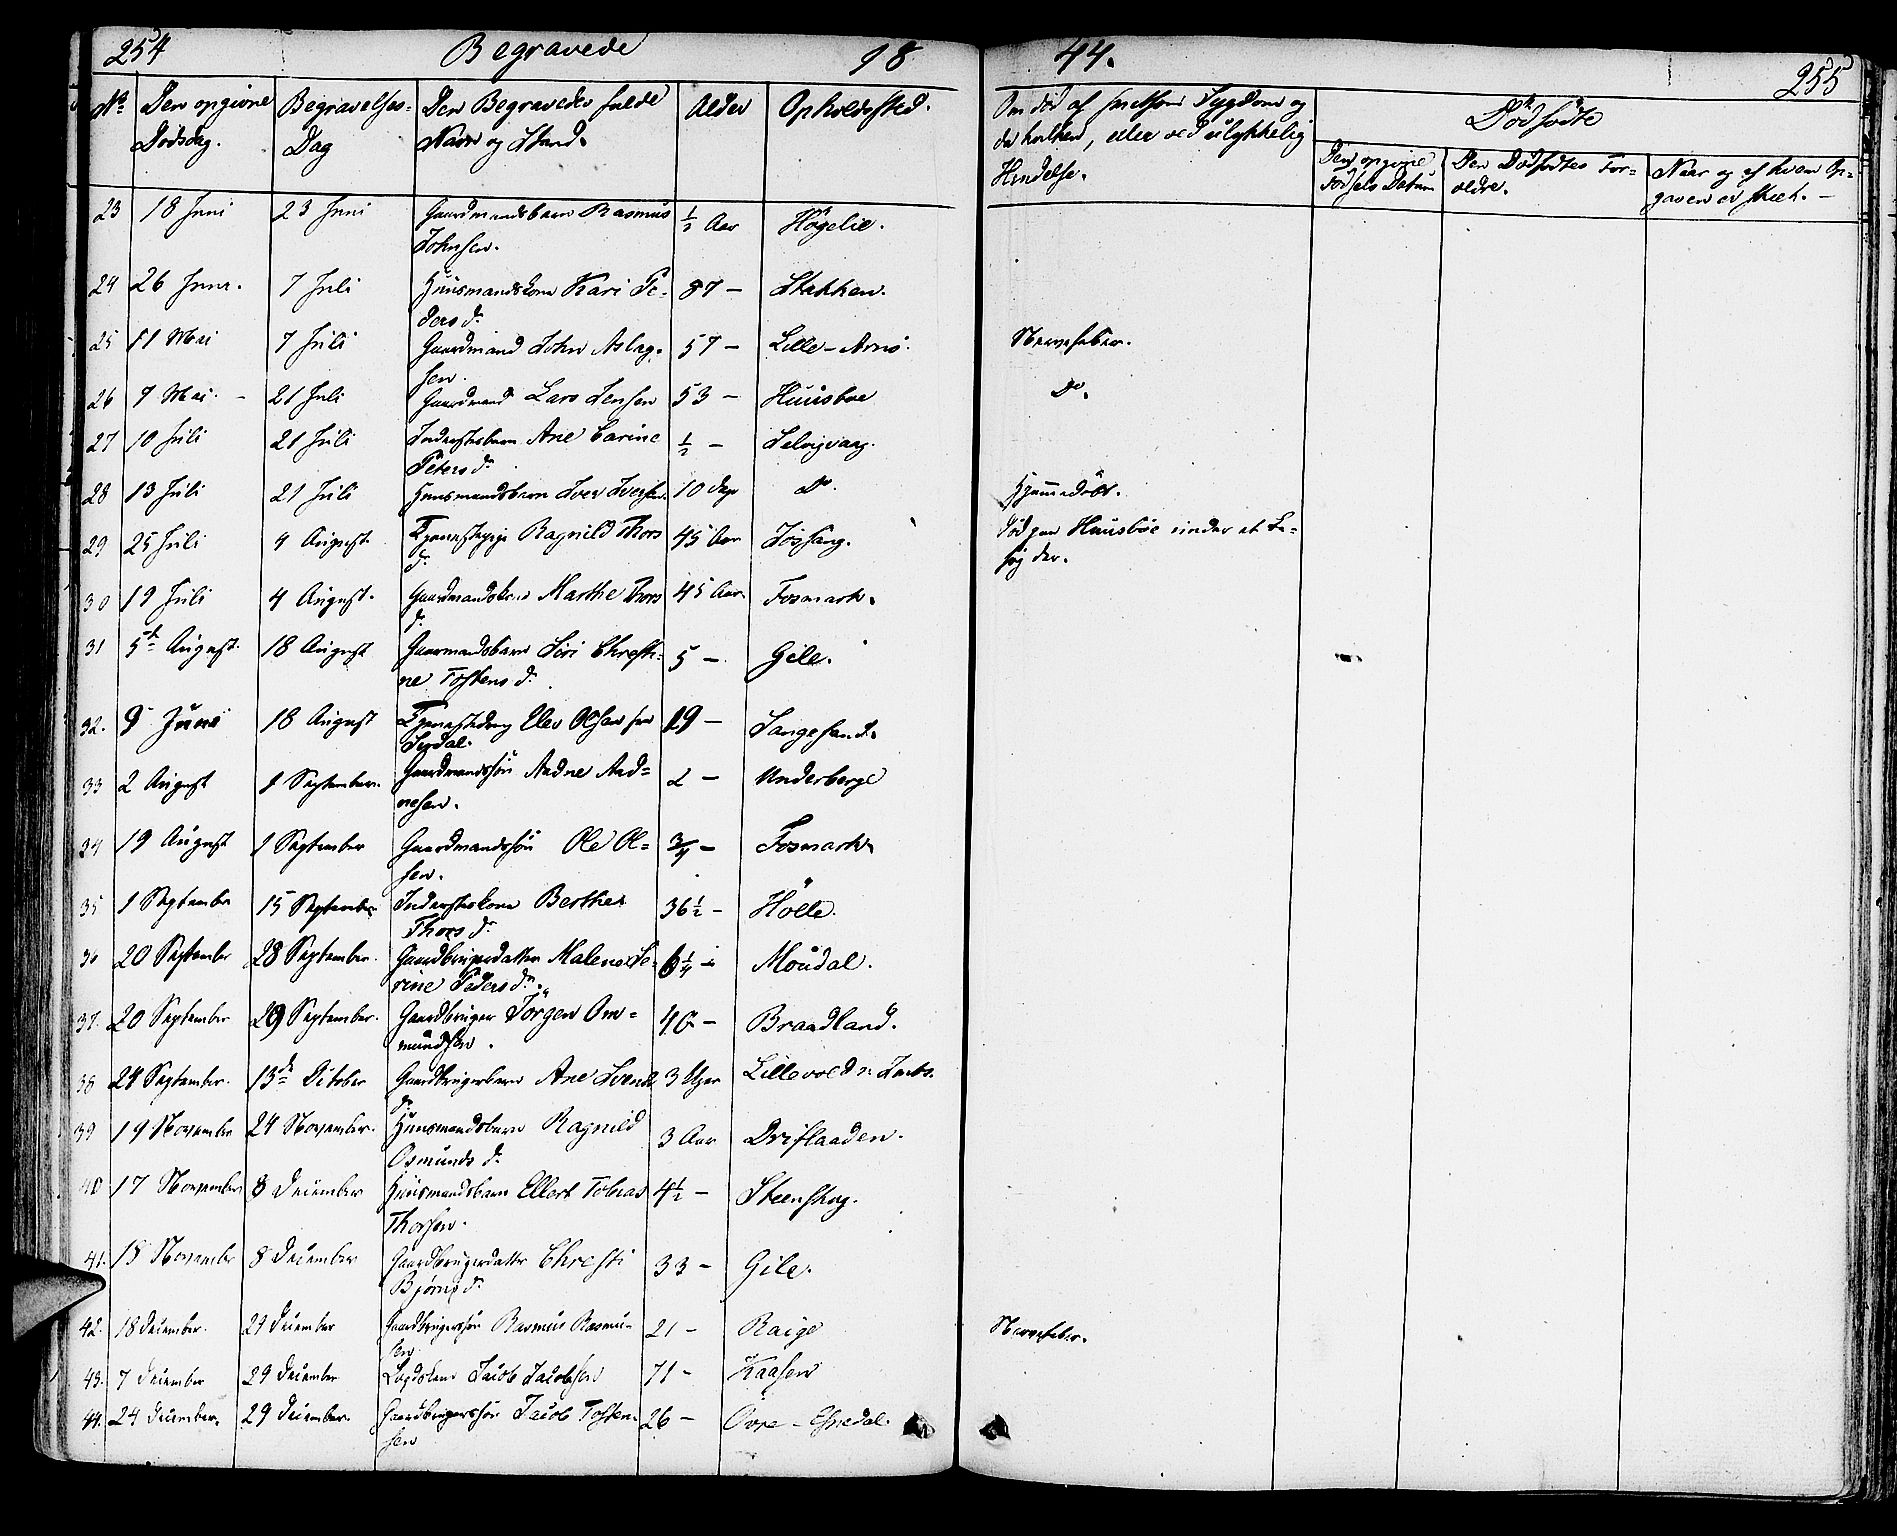 254 Begravede 18
No Den opgivne Dødsdag. Begravelses-Dag Den Begravedes fulde Navn og Stand. Alder Opholdssted.
23 18 Juni 23 Juni Gaardmandsbarn Rasmus ½ Aar Høgelie.
Johnsen.
24 26 Juni. 7 Juli Huusmandskone Kari Pe- 87 - Stakken.
ders d.
25 11 Mai 7 Juli Gaardmand John Aslag- 57 - Lille-Arnø.
sen.
26 7 Mai. - 21 Juli Gaardmand Lars Jensen 53 - Huusboe
27 10 Juli 21 Juli Inderstesbarn Ane Carine ½ - Selvigvaag.
Peters d.
28 13 Juli 21 Juli Huusmandsbarn Iver Iversen. 10 Dage Do.
29 25 Juli 4 August. Tjenestepige Ragnild Thors 45 Aar Jøssang.
d.
30 19 Juli 4 August. Gaardmandskone Marthe Thors 45 Aar. Fosmark.
d.
31 5te August. 18 August Gaarmandsbarn Siri Christi- 5 - Gile.
ne Tostens d.
32. 9 Juni 18 August Tjenestedreng Elev Olsen fra 19 - Sangesand.
Sirdal.
33 2 August 1 September. Gaardmandssøn Aadne Aad= 2 - Underberge
nesen.
34 19 August 1 September Gaardmandssøn Ole Ol= ¾ - Fosmark
sen.
35 1 September 15 September Inderstekone Berthe 36½ - Hølle.
Thors d.
36 20 September 28 September. Gaardbrugerdatter Malene Se- 6¼ - Moudal.
rine Peders d.
37. 20 September 29 September. Gaardbruger Jörgen Om= 40 - Braadland.
mundsen.
38 24 September. 13de October Gaardbrugerbarn Ane Svends 3 Uger Lillevold
d.
39 19 November 24 November. Huusmandsbarn Ragnild 3 Aar Driflaaden.
Osmunds d.
40 17 November 8 December Huusmandsbarn Ellert Tobias 4½ - Steenskog.
Thorsen.
41. 15 November 8 December Gaardbrugerdatter Christi 33 - Gile.
Bjørns d.
42. 18 December. 29 December Gaardbrugerssøn Rasmus Rasmu- 21 - Raige
sen
43. 7 December 29 December Jacob Jacobsen 71 - Kaasen
44. 24 December. 29 December. Gaardbrugerssøn Jacob Tosten- 26 - Øvre-Espedal.
sen
44. 255
Om død af smitsom Sygdom og
da hvilken, eller ved ulykkelig
Hendelse.
Dødfødte
Den opgivne
Fødsels Datum
Den Dødfødtes For-
ældre.
Naar og af hvem Op-
gaven er skeet. -
Nervefeber.
Do.
Hjemmedøbt.
død paa Huusbøe under et Be-
søg der.
Nervefeber.